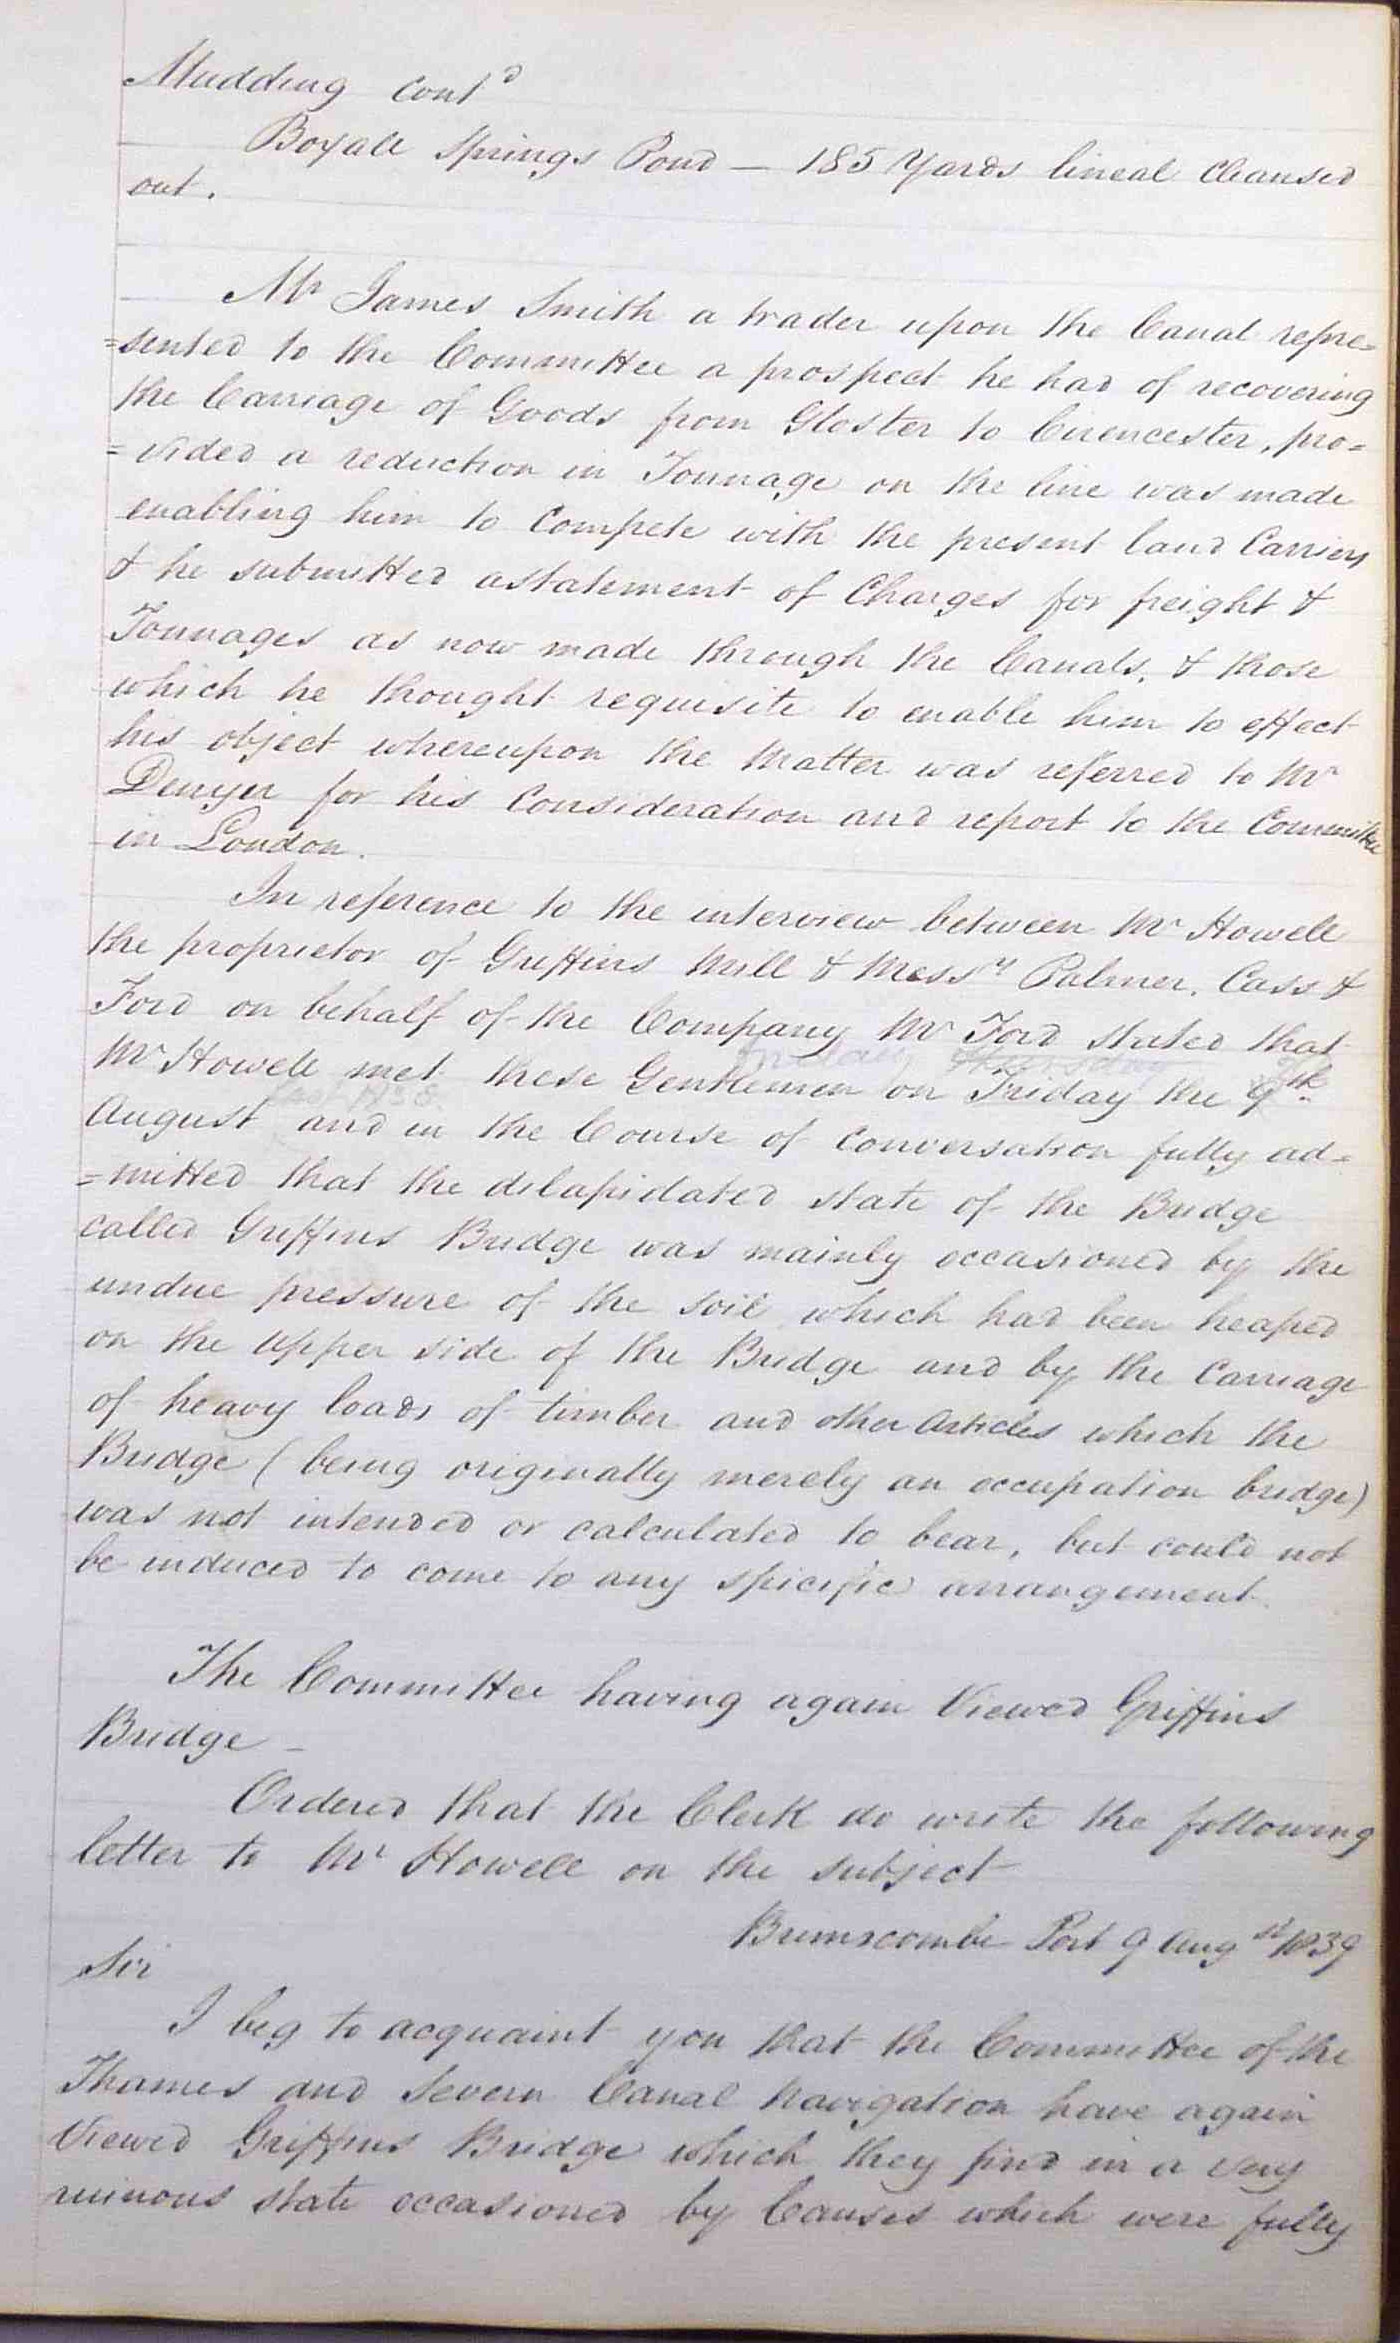 Mudding cont^d
Boxall Springs Pond — 185 Yards lineal cleansed
out.
Mr James Smith a trader upon the Canal repre=
=sented to the Committee a prospect he had of recovering
the Carriage of Goods from Gloster to Cirencester, pro=
=vided a reduction in Tonnage on the line was made
enabling him to compete with the present land Carriers
& he submitted a statement of Charges for freight &
Tonnages as now made through the Canals, & those
which he thought requisite to enable him to effect
his object whereupon the Matter was referred to Mr
Denyer for his Consideration and report to the Committee
in London.
In reference to the interview between Mr Howell
the proprietor of Griffins Mill & Mess^rs Palmer, Cass &
Ford on behalf of the Company Mr Ford stated that
Mr Howell met these Gentlemen on Friday the 9th
August and in the Course of conversation fully ad=
=mitted that the dilapidated state of the Bridge
called Griffins Bridge was mainly occasioned by the
undue pressure of the soil which had been heaped
on the upper side of the Bridge and by the Carriage
of heavy loads of timber and other Articles which the
Bridge (being originally merely an occupation bridge)
was not intended or calculated to bear, but could not
be induced to come to any specific arrangement.
The Committee having again Viewed Griffins
Bridge —
Ordered that the Clerk do write the following
letter to Mr Howell on the subject
Brimscombe Port 9 Aug^st 1839
Sir
I beg to acquaint you that the Committee of the
Thames and Severn Canal Navigation have again
Viewed Griffins Bridge which they find in a very
ruinous state occasioned by Causes which were fully